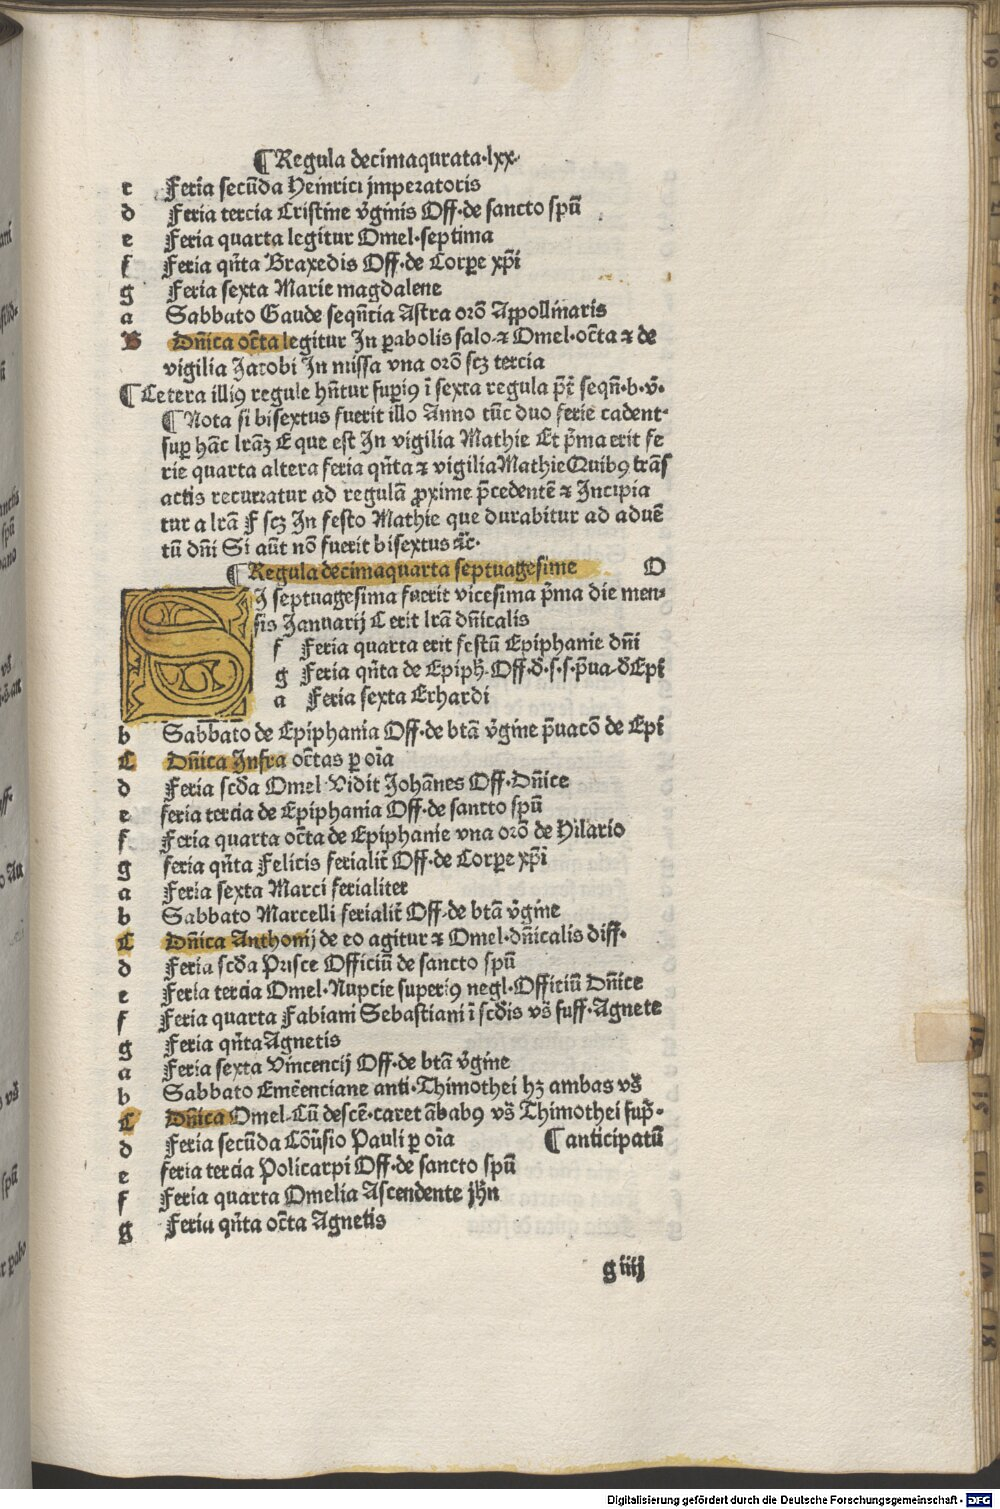 ¶Regula decimaqurata·lxx·
c Feria secūda Heinrici imperatoris
d Feria tercia Cristine v̄ginis Off·de sancto spū
e Feria quarta legitur Omel·septima
f Feria qn̄ta Braxedis Off·de Corꝑe xp̄i
g Feria sexta Marie magdalene
a Sabbato Gaude seqn̄tia Astra orō Appollinaris
B Dn̄ica oct̄a legitur In ꝑabolis salo·⁊ Omel·oct̄a ⁊ de
vigilia Jacobi In missa vna orō scꝫ tercia
¶Cetera illiꝰ regule hn̄tur suꝑiꝰ ī sexta regula p̄t̄ seqn̄·b·v̄·
¶Nota si bisextus fuerit illo Anno tūc duo ferie cadent·
suꝑ hāc lrāꝫ E que est In vigilia Mathie Et p̄ma erit fe
rie quarta altera feria qn̄ta ⁊ vigilia Mathie Quibꝰ trāſ
actis recurratur ad regulā ꝓxime p̄cedentē ⁊ Incipia
tur a lrā F scꝫ In festo Mathie que durabitur ad aduē
tū dn̄i Si aūt nō fuerit bisextus ⁊c̄·
¶Regula decimaquarta septuagesime O
SI septuagesima fuerit vicesima p̄ma die men⸗
sis Januarij C erit lrā dn̄icalis
f Feria quarta erit festū Epiphanie dn̄i
g Feria qn̄ta de Epiph̄·Off·d̄·s·s·p̄ua·d̄Epi
a Feria sexta Erhardi
b Sabbato de Epiphania Off·de btā v̄gine p̄uatō de Epi
C Dn̄ica Infra oct̄as ꝑ oīa
d Feria scd̄a Omel·Vidit Johānes Off·Dn̄ice
e feria tercia de Epiphania Off·de sancto spū
f Feria quarta oct̄a de Epiphanie vna orō de Hilario
g feria qn̄ta Felicis ferialit̄ Off·de Corꝑe xp̄i
a Feria sexta Marci ferialiter
b Sabbato Marcelli ferialit̄ Off·de btā v̄gine
C Dn̄ica Anthonij de eo agitur ⁊ Omel·dn̄icalis diff·
d Feria scd̄a Prisce Officiū de sancto spū
e Feria tercia Omel·Nupcie superiꝰ negl·Officiū Dn̄ice
f Feria quarta Fabiani Sebastiani ī scd̄is vs̄ suff·Agnete
g Feria qn̄ta Agnetis
a Feria sexta Vincencij Off·de btā v̄gine
b Sabbato Emēenciane anti·Thimothei hꝫ ambas vs̄
C Dn̄ica Omel·Cū descē·caret ābabꝰ vs̄ Thimothei sup̄·
d Feria secūda Cōūsio Pauli ꝑ oīa ¶anticipatū
e feria tercia Policarpi Off·de sancto spū
f Feria quarta Omelia Ascendente jh̄n
g Feria qn̄ta oct̄a Agnetis
g iiij
Digitalisierung gefördert durch die Deutsche Forschungsgemeinschaft - DFG